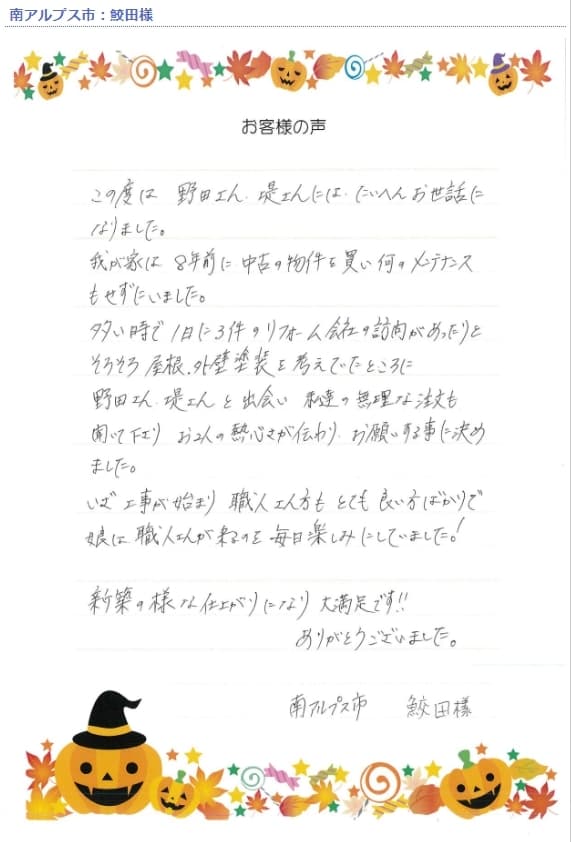 南アルプス市：鮫田様
お客様の声
この度は 野田さん、堤さんには、たいへんお世話に
なりました。
我が家は 8年前に 中古の物件を買い何のメンテナンス
もせずにいました。
多い時で 1日に3件のリフォーム会社の訪問があったりと
そろそろ屋根、外壁塗装を考えていたところに
野田さん、堤さんと出会い 私達の無理な注文も
聞いて下さり お2人の熱心さが伝わり、お願いする事に決め
ました。
いざ 工事が始まり 職人さん方も とても良い方ばかりで
娘は 職人さんが来るのを毎日楽しみにしていました。!
新築の様な仕上がりになり 大満足です!!
ありがとうございました。
南アルプス市 鮫田様